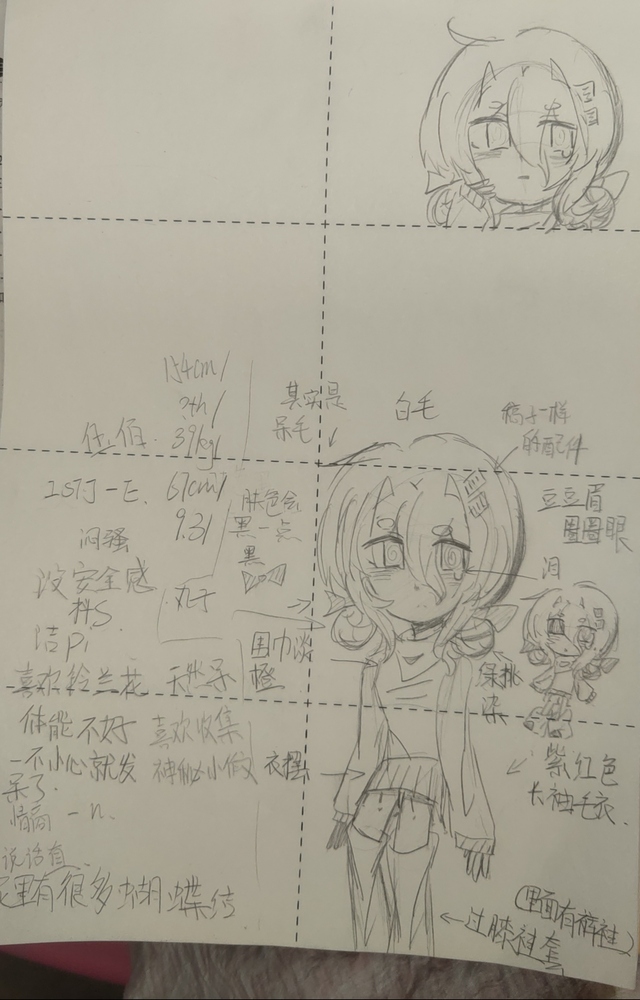 154cm/
39kg/
67cm/
9.31
INTJ-E.
闷骚
没安全感
抖S
洁Pi
喜欢铃兰花
天然呆
体能不好
喜欢收集
一不小心就发
呆了.
神秘小
情商 - n.
说话直.
里有很多蝴蝶结
丸子
肤色会
黑一点
黑
其实是
呆毛
白毛
一样
的配件
豆豆眉
圈圈眼
泪
围巾淡
橙
挑
染
衣摆
紫红色
长袖毛衣.
(里面有裤袜)
过膝袜套